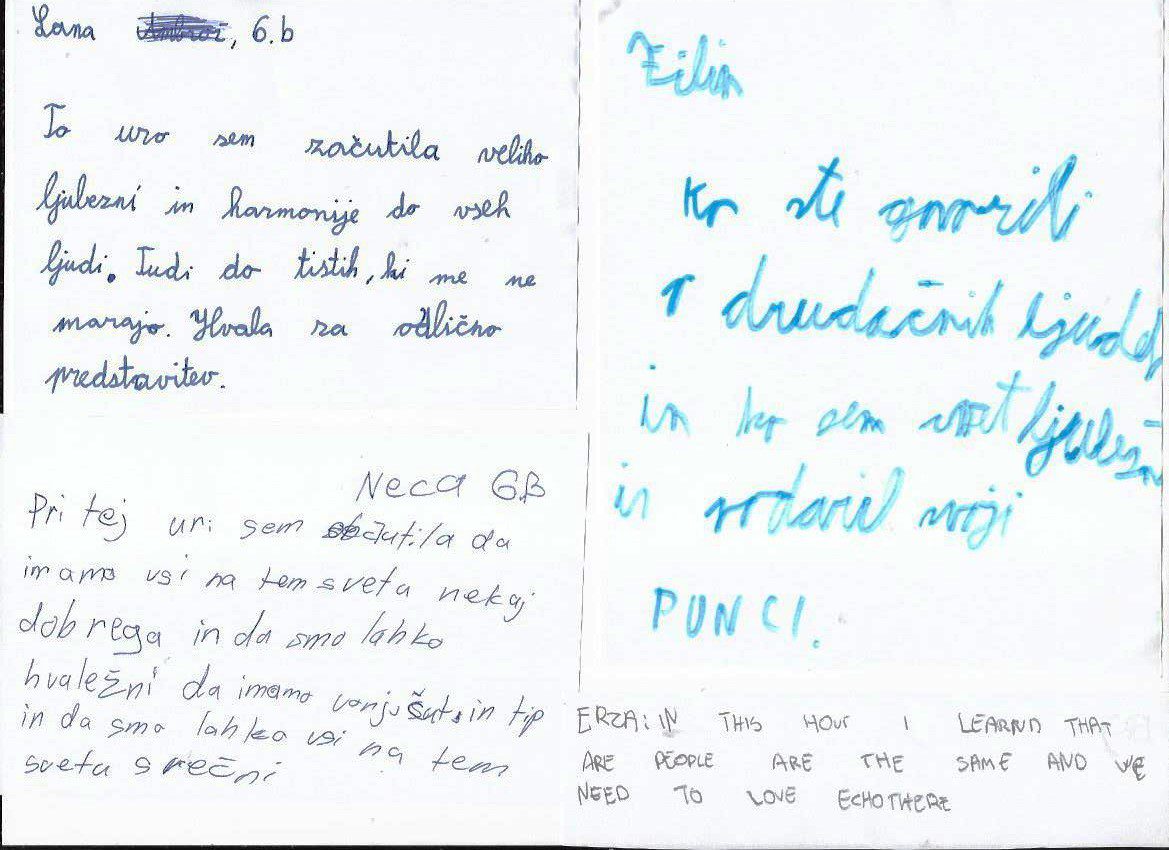 Lana , 6.b
To uro sem začutila veliko
ljubezni in harmonije do vseh
ljudi. Tudi do tistih, ki me ne
marajo. Hvala za odlično
predstavitev.
Neca 6B
Pri tej uri sem občutila da
imamo vsi na tem sveta nekaj
dobrega in da smo lahko
hvaležni da imamo vonj, šut, in tip
in da smo lahko vsi na tem
sveta srečni
Ko ste govorili
o drudačnih
in ko sem vzet ljubezn
in podaril svoji
PUNCI.
ERZA: IN THIS HOUR I LEARND THAT
ARE PEOPLE ARE THE SAME AND WE
NEED TO LOVE ECHOTHERE